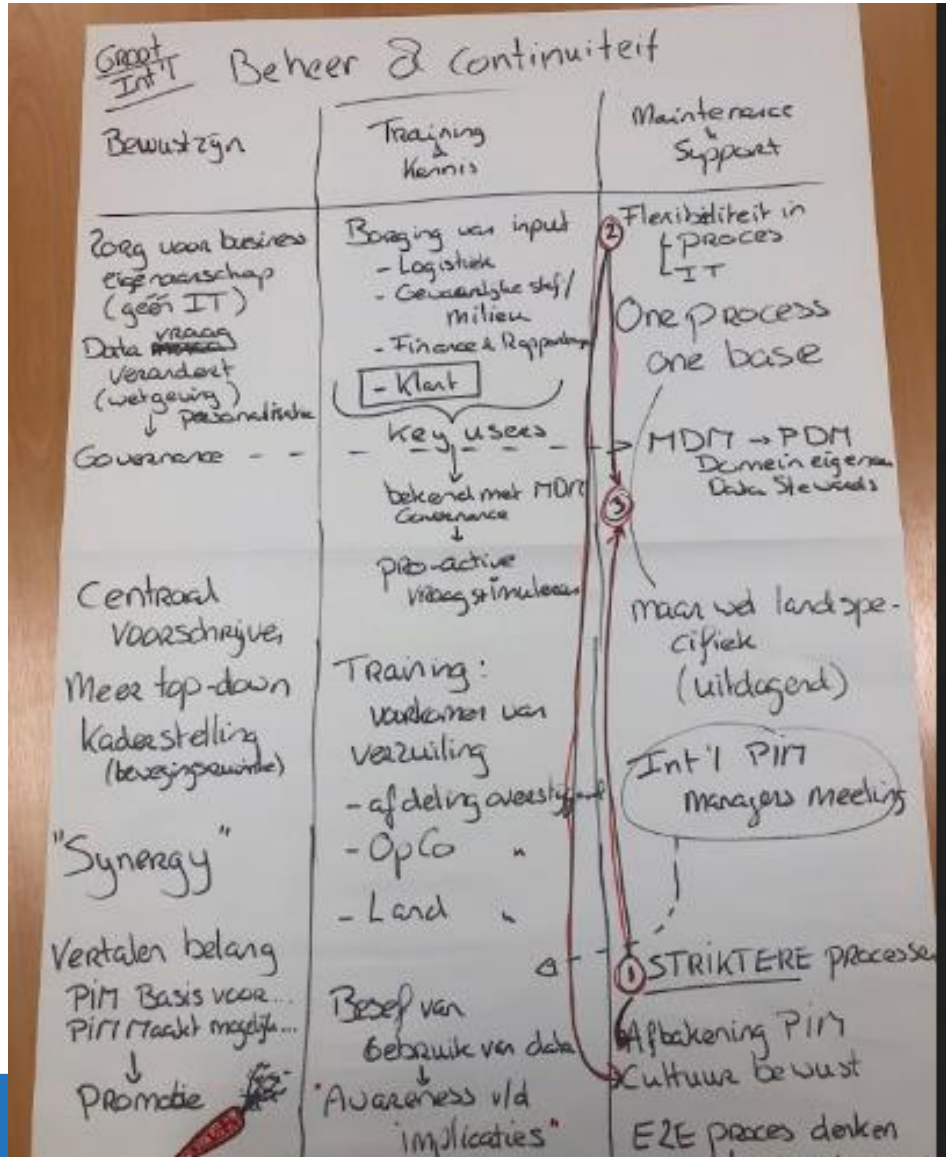 GROOT
Int'l
Beheer & Continuiteit
Bewustzijn
Zorg voor business
eigenaarschap
(géén IT)
Data vraag
verandert
(wetgeving)
↓
Governance
Centraal
Voorschrijven
Meer top-down
Kaderstelling
"Synergy"
Vertalen belang
PIM Basis voor...
PIM Maakt mogelijk...
↓
Promotie
Training
&
Kennis
Borging van input
- Logistiek
- Gevaarlijke stof/
milieu
- Finance & Rapportage
- Klant
Key users
↓
bekend met MDM
Governance
↓
pro-active
vraag stimuleren
Training:
voorkomen van
verzuiling
- afdeling overstijgend
- OpCo "
- Land "
Besef van
Gebruik van data
↓
"Awareness v/d
implicaties"
Maintenance
&
Support
② Flexibiliteit in
- PROCES
- IT
One process
one base
MDM → PDM
Domein eigenaren
Data Stewards
③
maar wel landspe-
cifiek
(uitdagend)
Int'l PIM
managers meeting
① STRIKTERE processen
Afbakening PIM
Cultuur bewust
E2E proces denken